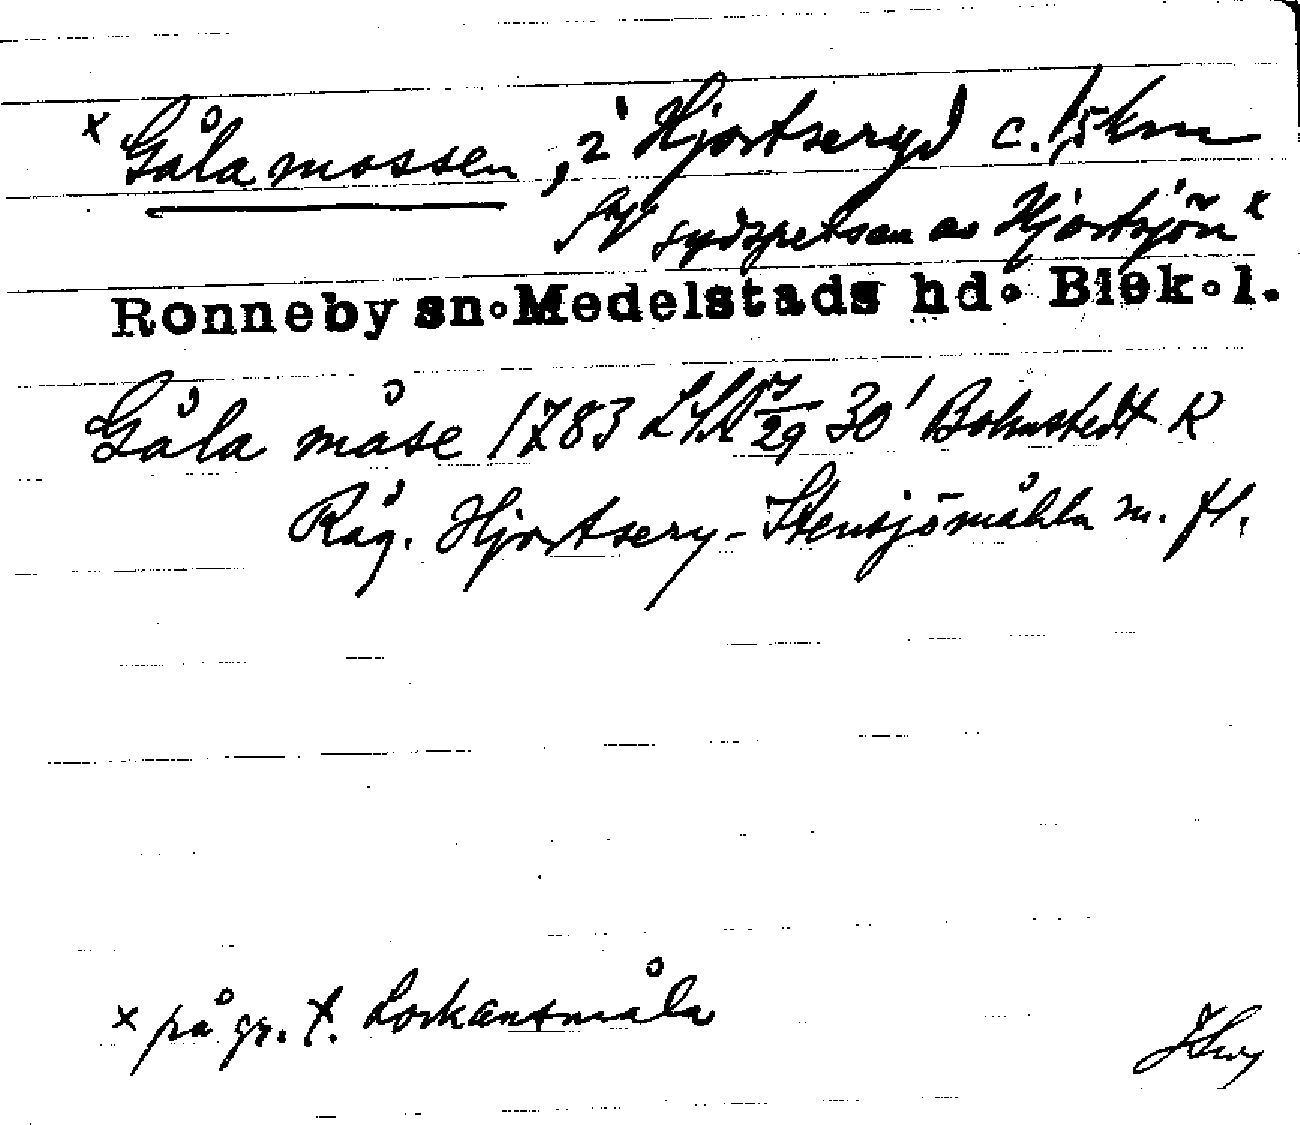 x Gåla mossen, i Hjortseryd c. 1,5 km
SV sydspetsen av Hjortsjön x
Ronneby sn. Medelstads hd. Blek. l.
Gåla måse 1783 LSA 7/29 30' Bohnstedt R
Råg. Hjortsery - Stensjömåhla m. fl.
x på gr. t. Lorkansmåla